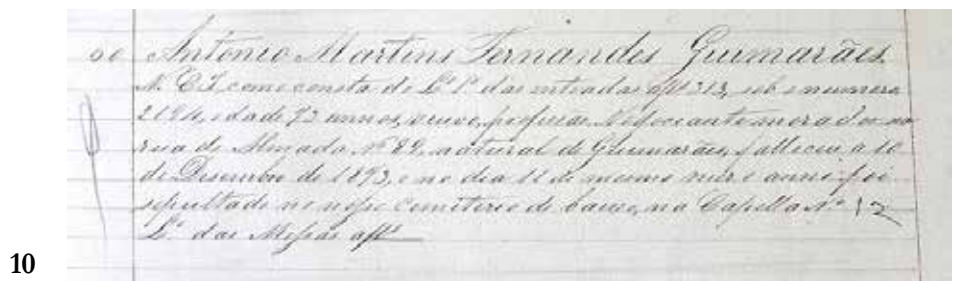 90 Antonio Martins Fernandes Guimarães
N. C. I. como consta do Lº 1º das entradas afls 313, sob o numero
2194, idade 72 annos, viuvo, proprio. Negociante morador na
rua do Almada Nº 89, natural de Guimarães, falleceu a 10
de Desembro de 1893, e no dia 11 do mesmo mez e anno foi
sepultado no nosso Cemiterio de baixo, na Capella Nº 12
Lº das Missas afls
10